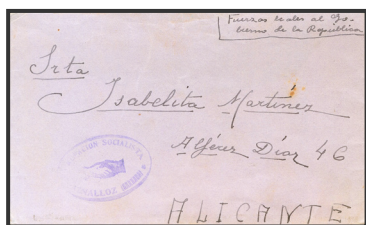 Fuerzas leales al Go-
bierno de la República
Srta
Isabelita Martínez
Alférez Díaz 46
ALICANTE